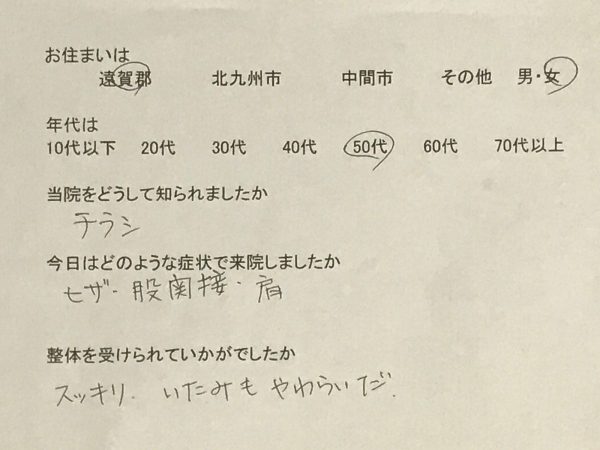 お住まいは
遠賀郡 北九州市 中間市 その他 男・女
年代は
10代以下 20代 30代 40代 50代 60代 70代以上
当院をどうして知られましたか
チラシ
今日はどのような症状で来院しましたか
ヒザ・股関接・肩
整体を受けられていかがでしたか
スッキリ. いたみも やわらいだ.